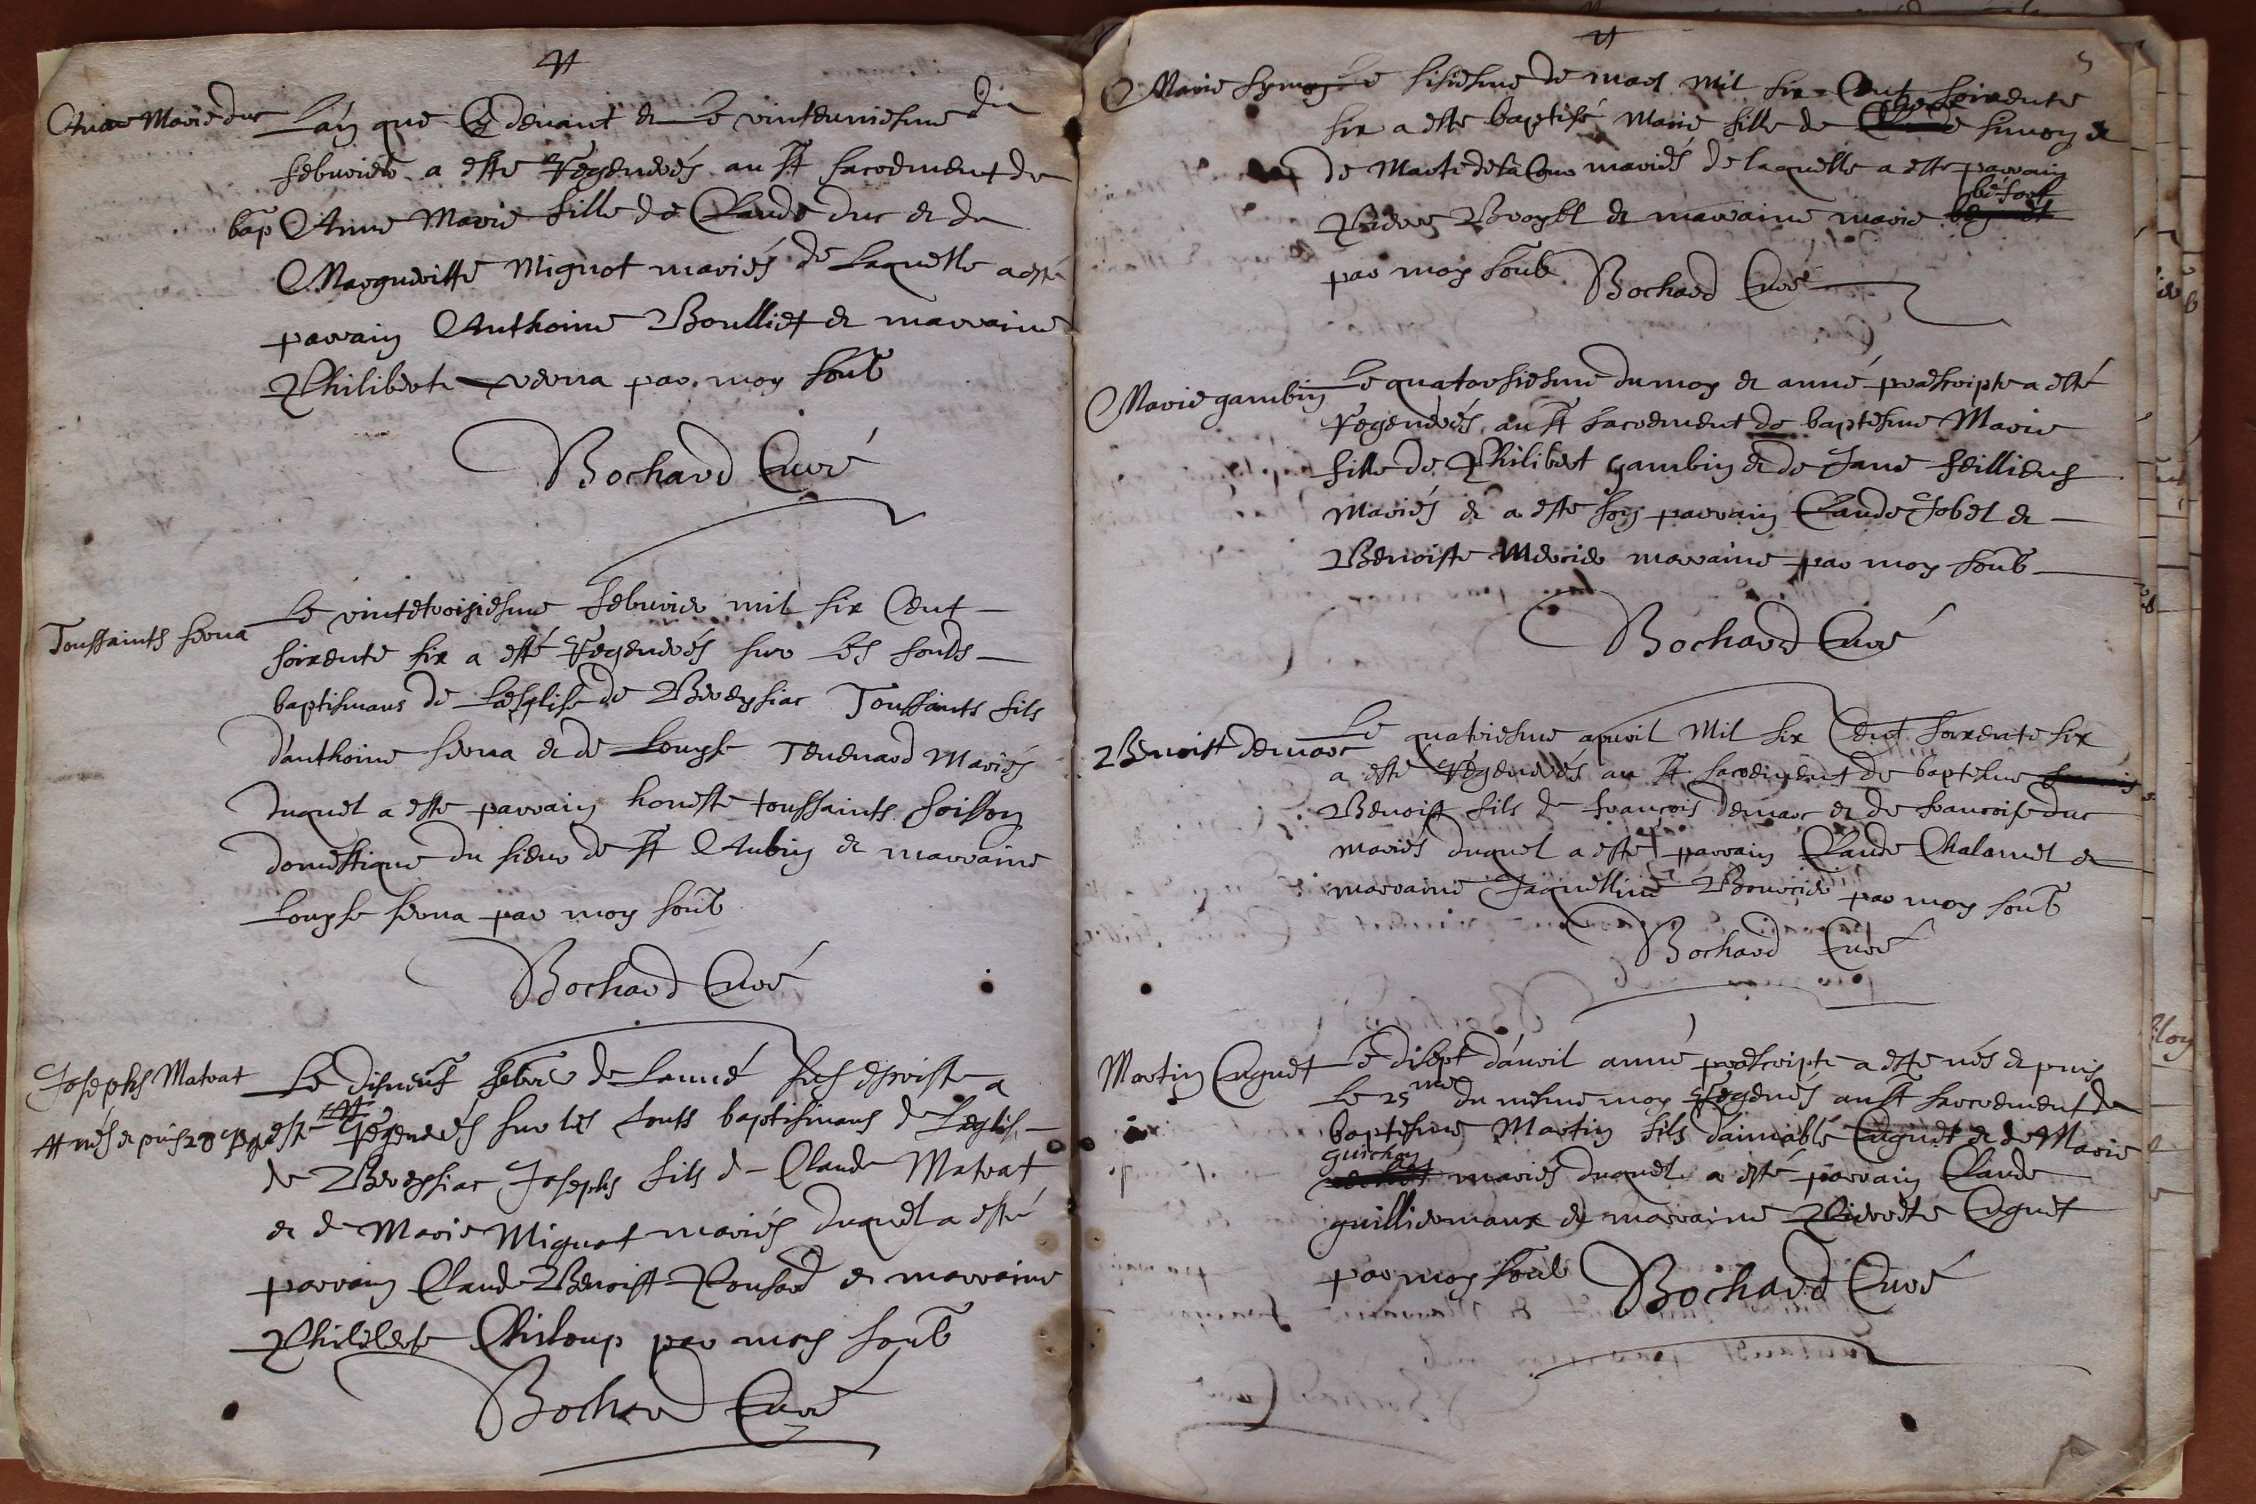 Anne Marie duc
Lan que Cy devant et Le vinteuniesme du
febvrier a este Regenerés au St sacrement de
bap Anne Marie fille de Claude duc et de
Margueritte Mignot mariés de Laquelle a esté
parrain Anthoine Boulliet et marraine
Philiberte verna par moy soub
Bochard Curé
Toussaints ferna
Le vintetroisiesme febvrier mil six Cent
soixente six a esté Regenerés sur Les fonds
baptismaus de Lesglise de Bereysiac Toussaints fils
d'anthoine ferna et de Louyse Tevenard Mariés
duquel a este parrain honeste toussaints soisson
domestique du sieur de St Aubin et marraine
Louyse ferna par moy soub
Bochard Curé
Josephs Matrat
Le disneuf febvr de Lanné sus escriste a
nés et puis 28 este Regenerés sur les fonts baptismaus de Leglise
de Bereysiac Josephs fils de Claude Matrat
et de Marie Mignot mariés duquel a esté
parrain Claude Benoist Ronsard et marraine
Philiberte Chiloup par moy soub
Bochard Curé
5
Marie symon
Le sisiesme de mars mil six Cent soixente
six a este baptisé Marie fille de Claude simon et
de Marte de la Cour mariés de laquelle a este parrain
Pierre Broyet et marraine marie
par moy soub Bochard Curé
Marie gambin
Le quatorsiesme du moy et anné prescripte a esté
Regenerés au St sacrement de baptesme Marie
fille de Philibert gambin et de Jane feilliens
Mariés et a este son parrain Claude Jobel et
Benoiste Mercier marraine par moy soub
Bochard Curé
Benoist demarc
Le quatriesme apvril Mil six Cent soixente six
a este Regenerés au St sacrement de baptesme
Benoist fils de francois demarc et de francoise duc
mariés duquel a este parrain Claude Chalamel et
marraine Jaquelline par moy soub
Bochard Curé
Martin Cuguet
Le disept d'avril anné prescripte a este nés et puis
Le 25me du mesme moy Regenerés au St sacrement de
baptesme Martin fils d'aimable Cuguet et de Marie
guichon
mariés duquel a esté parrain Claude
guilliermaux et marraine Pierrette Cuguet
par moy soub Bochard Curé